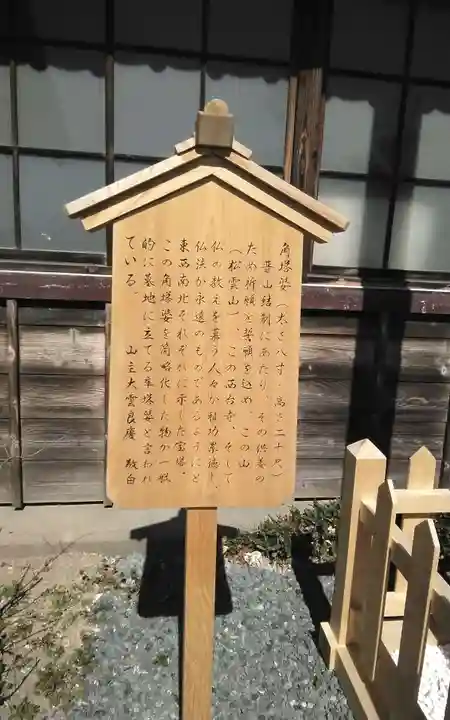 角塔婆（太さ八寸・高さ二十尺）
晋山結制にあたり、その供養の
ため祈願と誓願を込め、この山
（松雲山）、この西台寺、そして
仏の教えを慕う人々が祖功累徳し、
仏法が永遠のものであるようにと
東西南北それぞれに示した宝塔。
この角塔婆を簡略化した物が一般
的に墓地に立てる卒塔婆と言われ
ている。
山主大雲良慶 敬白